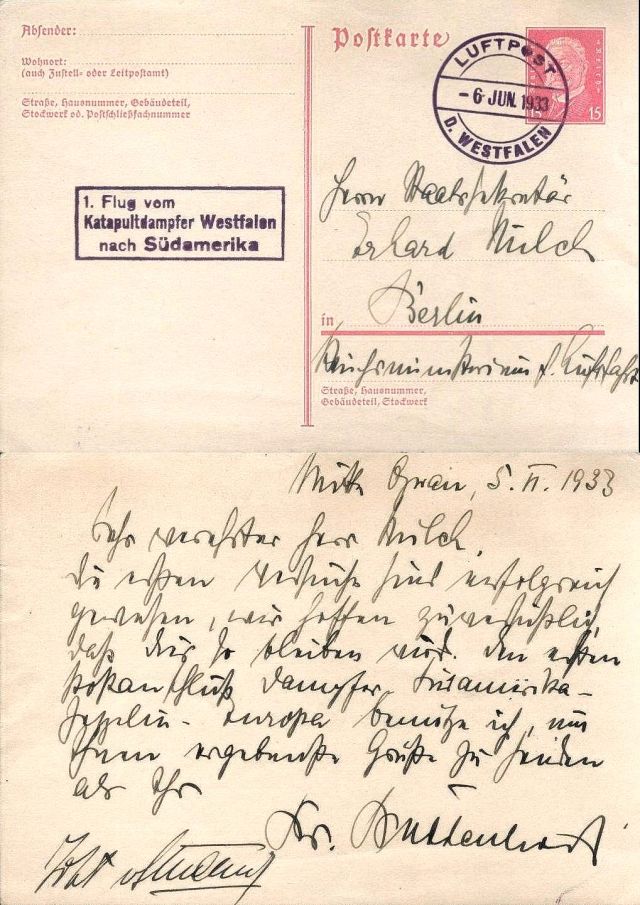 Absender:
Wohnort:
(auch Zustell- oder Leitpostamt)
Straße, Hausnummer, Gebäudeteil,
Stockwerk od. Postschließfachnummer
Postkarte
LUFTPOST
- 6. JUN. 1933
D. WESTFALEN
15 15
1. Flug vom
Katapultdampfer Westfalen
nach Südamerika
Herrn Staatssekretär
Erhard Milch
in Berlin
Reichsministerium f. Luftfahrt
Straße, Hausnummer,
Gebäudeteil, Stockwerk
Mitte Ozean, 5. VI. 1933
Sehr verehrter Herr Milch,
die ersten Versuche sind erfolgreich
gewesen, wir hoffen zuversichtlich,
daß dies so bleiben wird. Den ersten
Postanschluß Dampfer Südamerika-
Zeppelin-Europa benütze ich, um
Ihnen ergebenste Grüße zu senden
als Ihr
Dr.